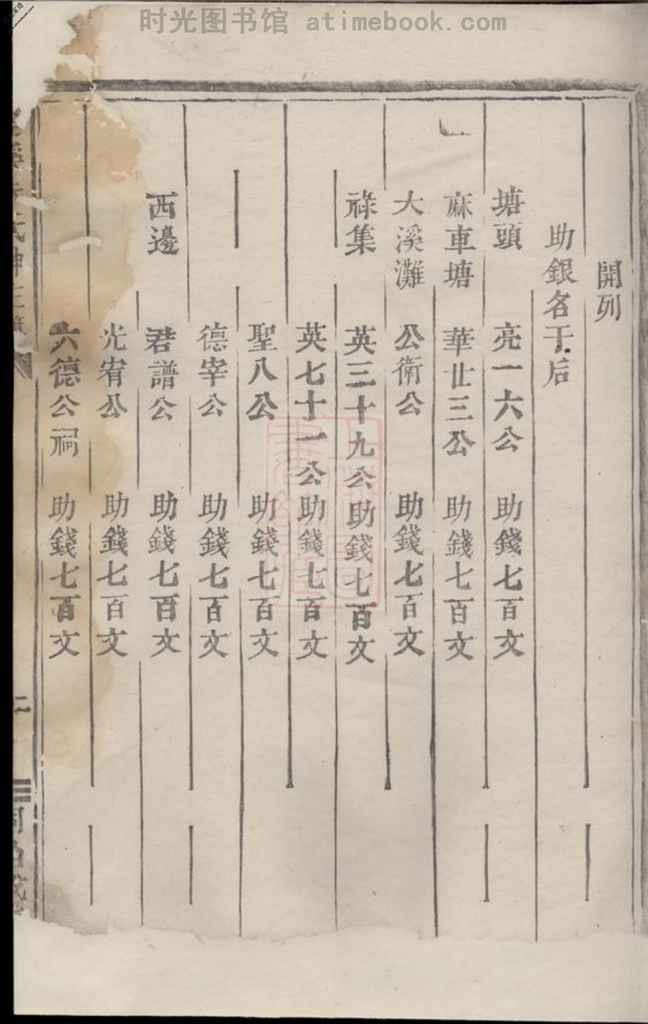 时光图书馆 atimebook.com
開列
助銀名于后
塘頭 亮一六公 助錢七百文
麻車塘 華廿三公 助錢七百文
大溪灘 公衛公 助錢七百文
祿集 英三十九公 助錢七百文
英七十一公 助錢七百文
聖八公 助錢七百文
德宰公 助錢七百文
西邊 君譜公 助錢七百文
光宥公 助錢七百文
六德公祠 助錢七百文